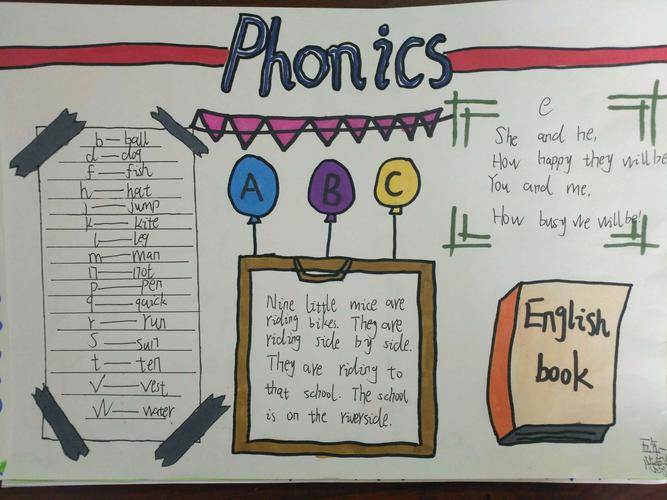 Phonics
b — ball
d — dog
f — fish
h — hat
j — jump
k — kite
l — leg
m — man
n — not
p — pen
q — quick
r — run
s — sun
t — ten
v — vest
w — water
A B C
Nine little mice are
riding bikes. They are
riding side by side.
They are riding to
that school. The school
is on the riverside.
e
She and he,
How happy they will be
You and me,
How busy we will be!
English
book